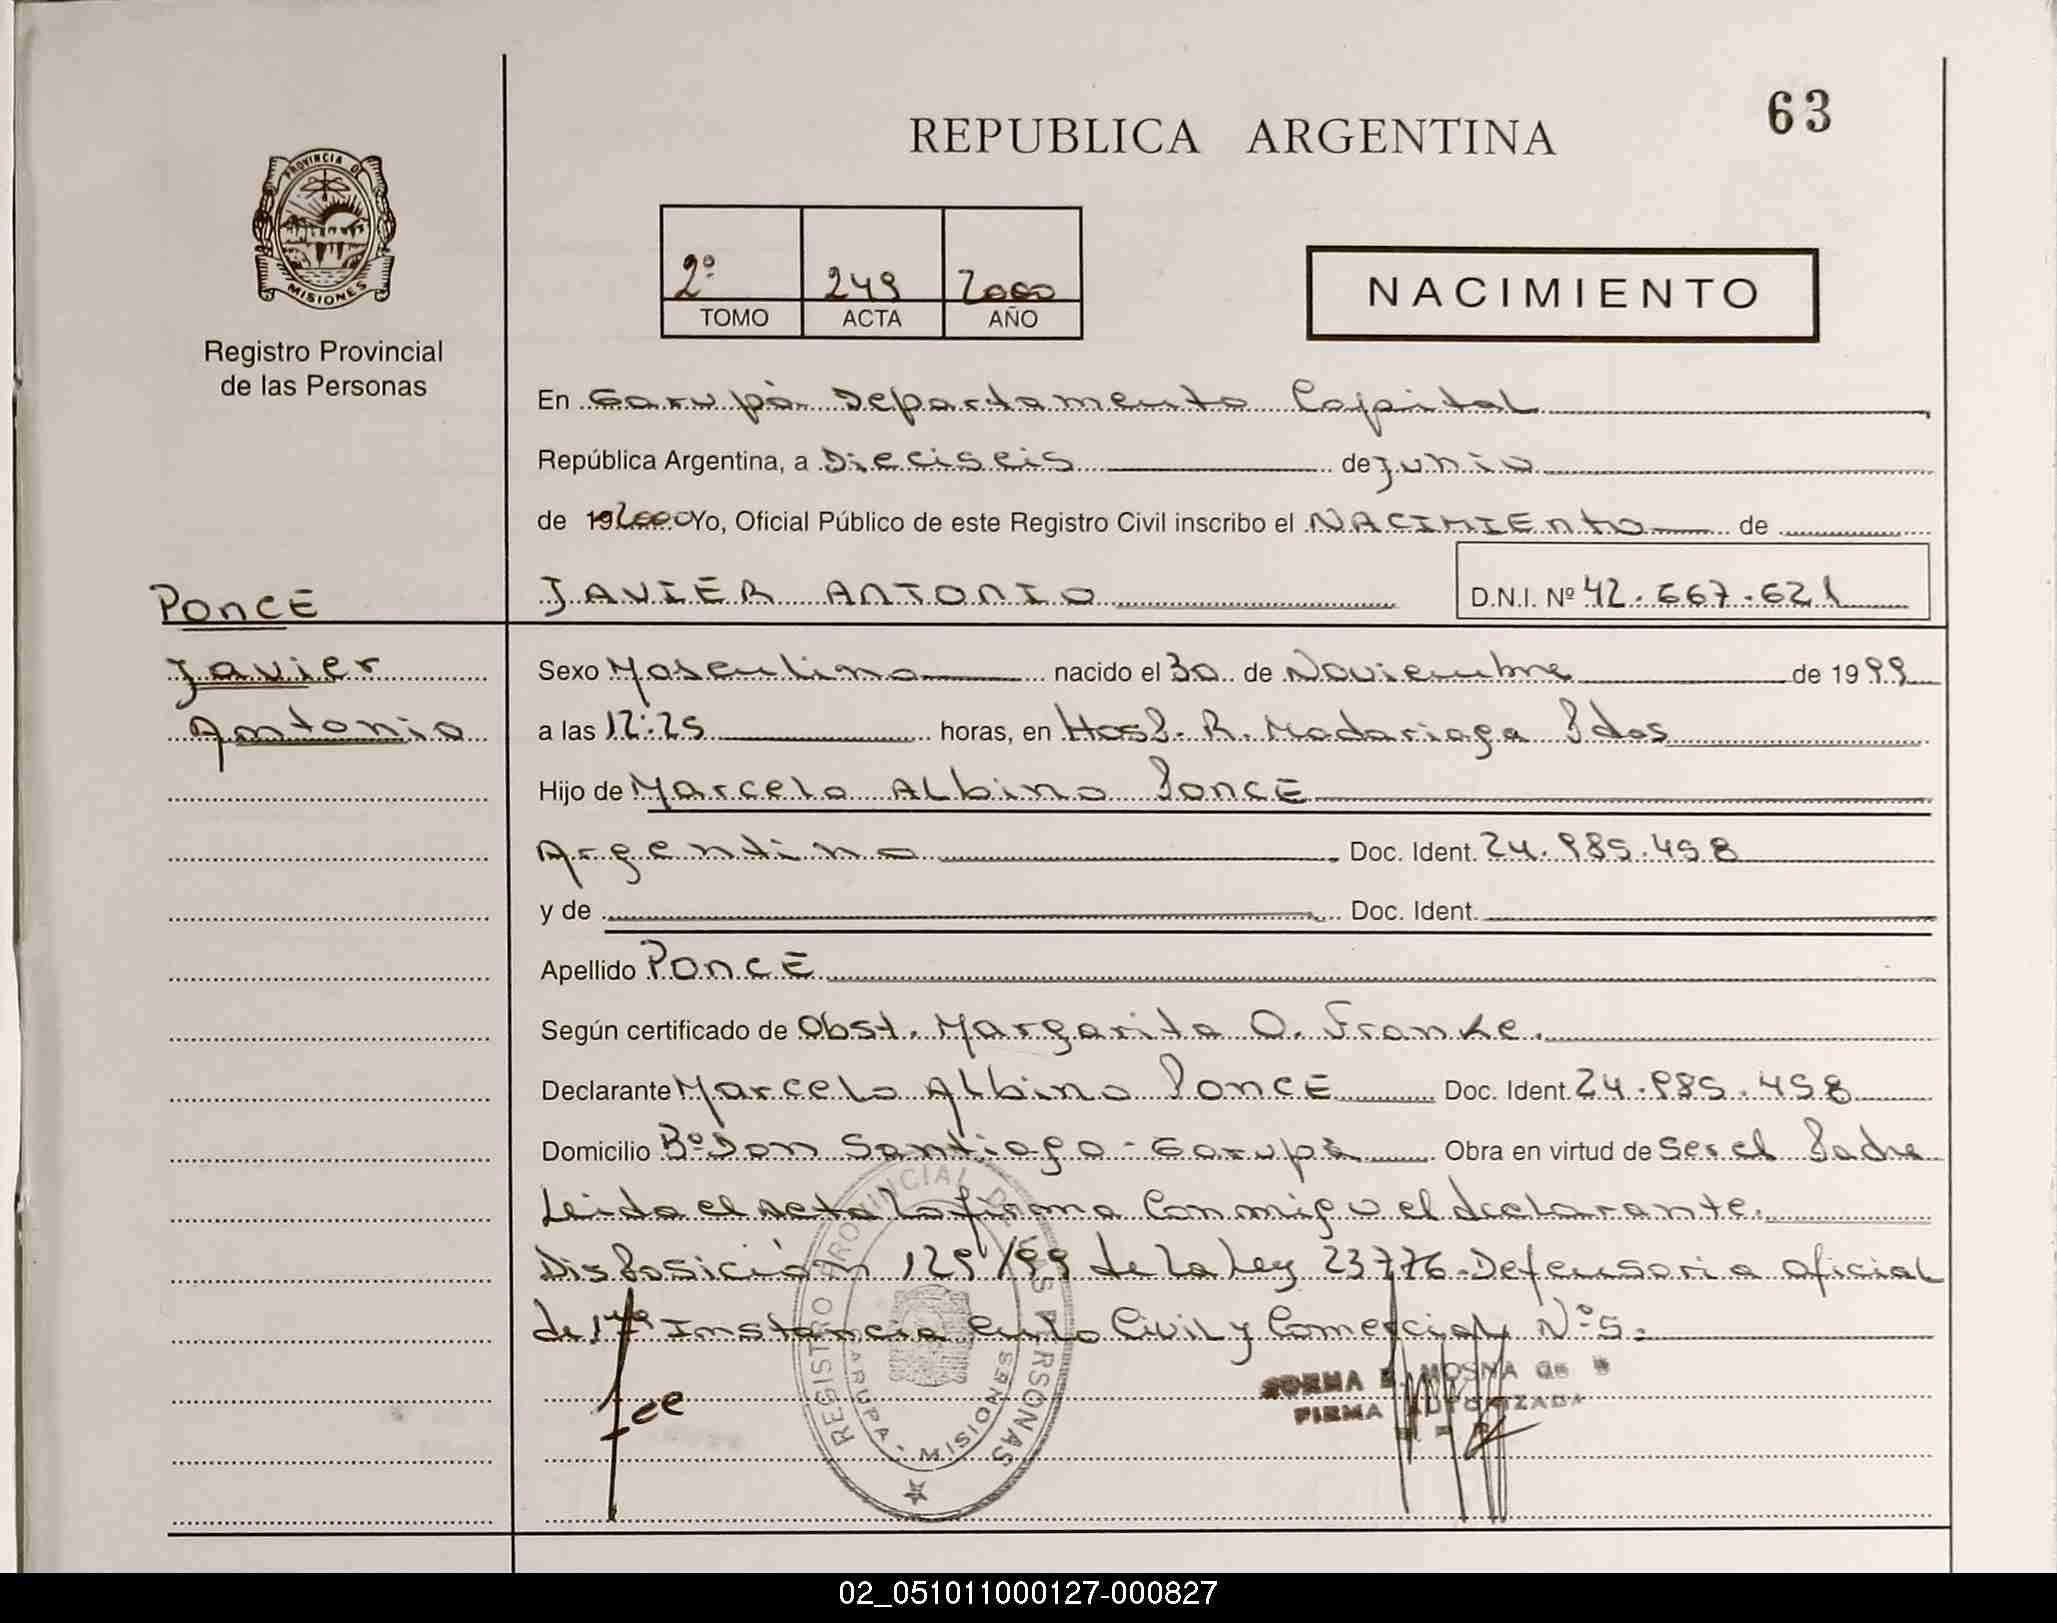 63
REPUBLICA ARGENTINA
PROVINCIA DE
MISIONES
Registro Provincial
de las Personas
2º 249 2000
TOMO ACTA AÑO
NACIMIENTO
En Garupà Departamento Capital
República Argentina, a Dieciseis de junio
de 192000 Yo, Oficial Público de este Registro Civil inscribo el NACIMIEnto de
PoncE
JAVIER ANTONIO D.N.I. Nº 42.667.621
Javier
Antonio
Sexo Masculino nacido el 30 de Noviembre de 1999
a las 12:25 horas, en Hosp. R. Madariaga Pdas
Hijo de Marcelo Albino PoncE
Argentino Doc. Ident. 24.985.458
y de Doc. Ident.
Apellido PoncE
Según certificado de Obst. Margarita O. Franke.
Declarante Marcelo Albino PoncE Doc. Ident. 24.985.458
Domicilio Bº Don Santiago - Garupà Obra en virtud de ser el Padre
Leida el acta la firma conmigo el declarante.
Disposición 129/99 de la Ley 23776. Defensoria oficial
de 1º Instancia en lo Civil y Comercial Nº 5.
REGISTRO PROVINCIAL DE LAS PERSONAS
GARUPA - MISIONES
MOSNA de
FIRMA AUTORIZADA
02_051011000127-000827